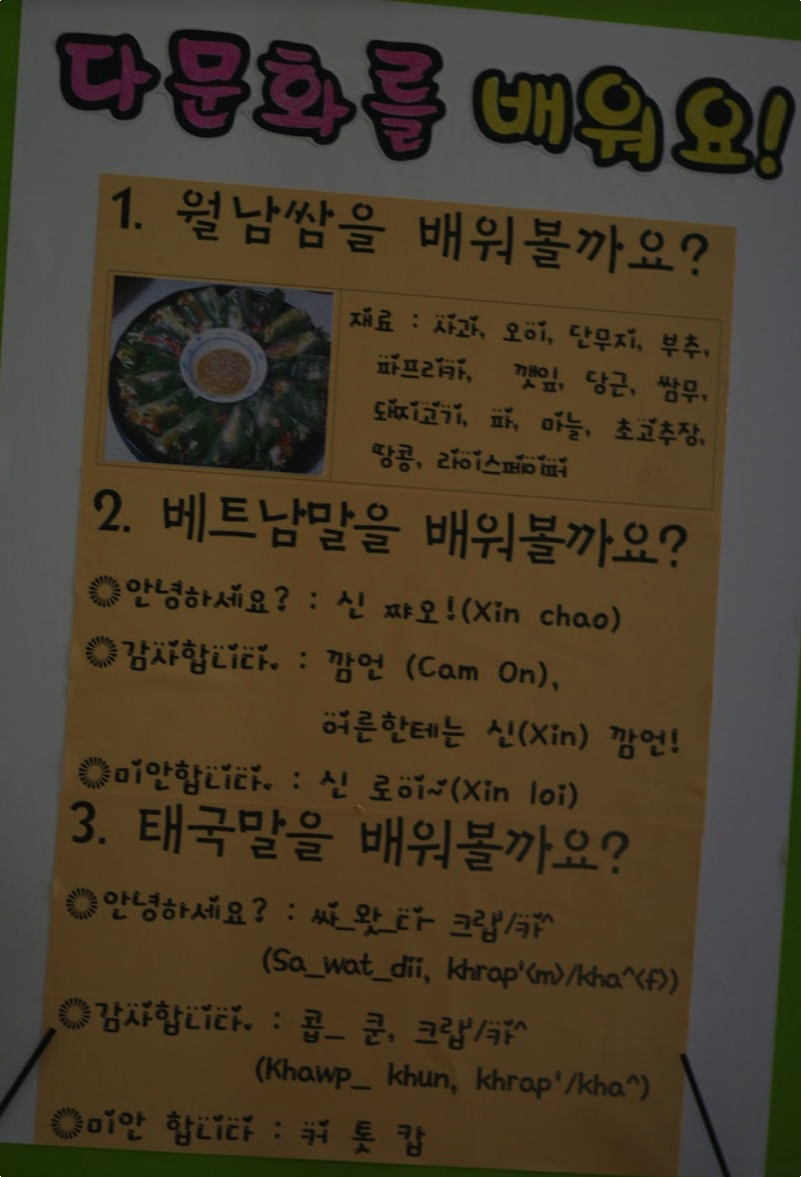 다문화를 배워요!
1. 월남쌈을 배워볼까요?
재료 : 사과, 오이, 단무지, 부추,
파프리카, 깻잎, 당근, 쌈무,
돼지고기, 파, 마늘, 초고추장,
땅콩, 라이스페이퍼
2. 베트남말을 배워볼까요?
안녕하세요? : 신 쨔오!(Xin chao)
감사합니다. : 깜언 (Cam On),
어른한테는 신(Xin) 깜언!
미안합니다. : 신 로이~(Xin loi)
3. 태국말을 배워볼까요?
안녕하세요? : 싸_왓_디- 크랍'/카^
(Sa_wat_dii, khrap'<m>/kha^<f>)
감사합니다. : 콥_ 쿤, 크랍'/카^
(Khawp_ khun, khrap'/kha^)
미안 합니다 : 커 톳 캅